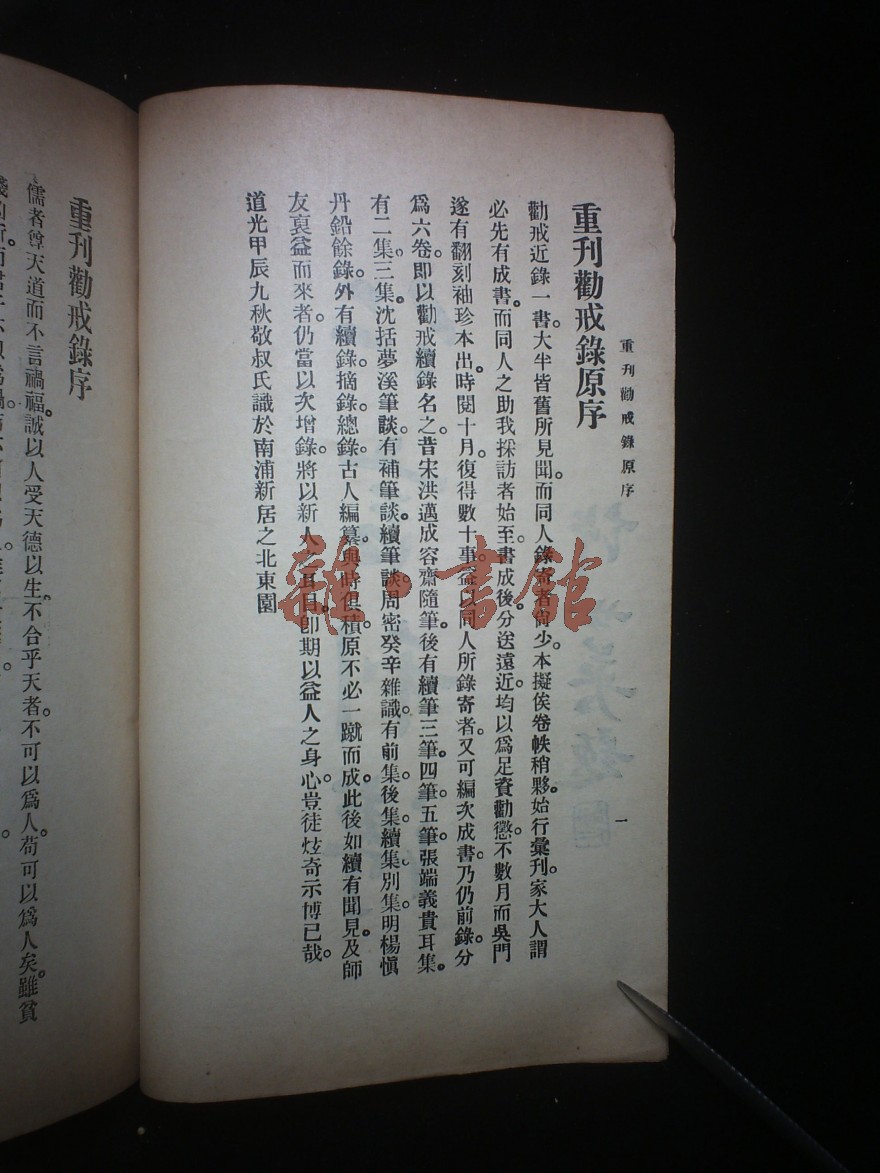 重刊勸戒錄原序
一
重刊勸戒錄原序
勸戒近錄一書。大半皆舊所見聞。而同人錄寄者尚少。本擬俟卷帙稍夥。始行彙刊。家大人謂
必先有成書。而同人之助我採訪者始至。書成後。分送遠近。均以為足資勸懲。不數月而吳門
遂有翻刻袖珍本出。時閱十月。復得數十事。益以同人所錄寄者。又可編次成書。乃仍前錄。分
為六卷。即以勸戒續錄名之。昔宋洪邁成容齋隨筆後。有續筆三筆。四筆。五筆。張端義貴耳集。
有二集。三集。沈括夢溪筆談。有補筆談。續筆談。周密癸辛雜識。有前集。後集。續集。別集。明楊慎
丹鉛餘錄。外有續錄。摘錄。總錄。古人編纂。與時俱積。原不必一蹴而成。此後如續有聞見。及師
友裒益而來者。仍當以次增錄。將以新人之耳目。即期以益人之身心。豈徒炫奇示博已哉。
道光甲辰九秋敬叔氏識於南浦新居之北東園
重刊勸戒錄序
儒者尊天道而不言禍福。誠以人受天德以生。不合乎天者。不可以為人。苟可以為人矣。雖貧
雜·書館